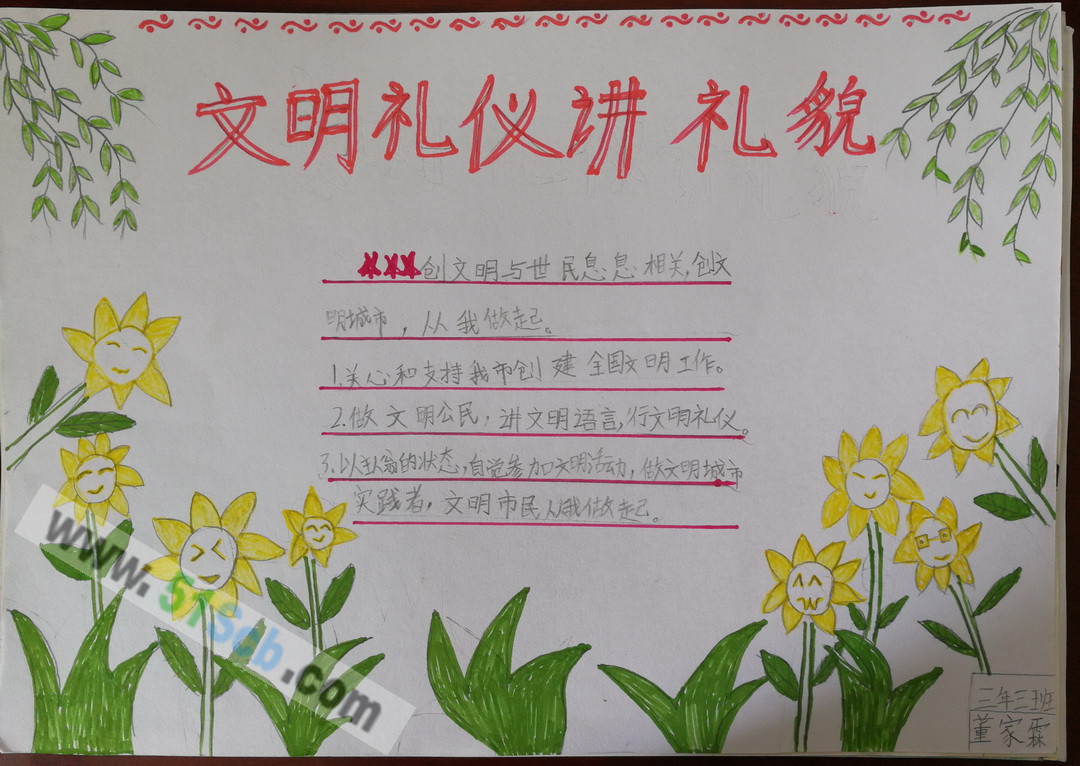 文明礼仪讲礼貌
创文明与世民息息相关,创文
明城市,从我做起。
1.关心和支持我市创建全国文明工作。
2.做文明公民,讲文明语言,行文明礼仪。
3.以的状态,自觉参加文明活动,做文明城市
实践者,文明市民从我做起。
三年三班
董家霖
www.51Scb.com